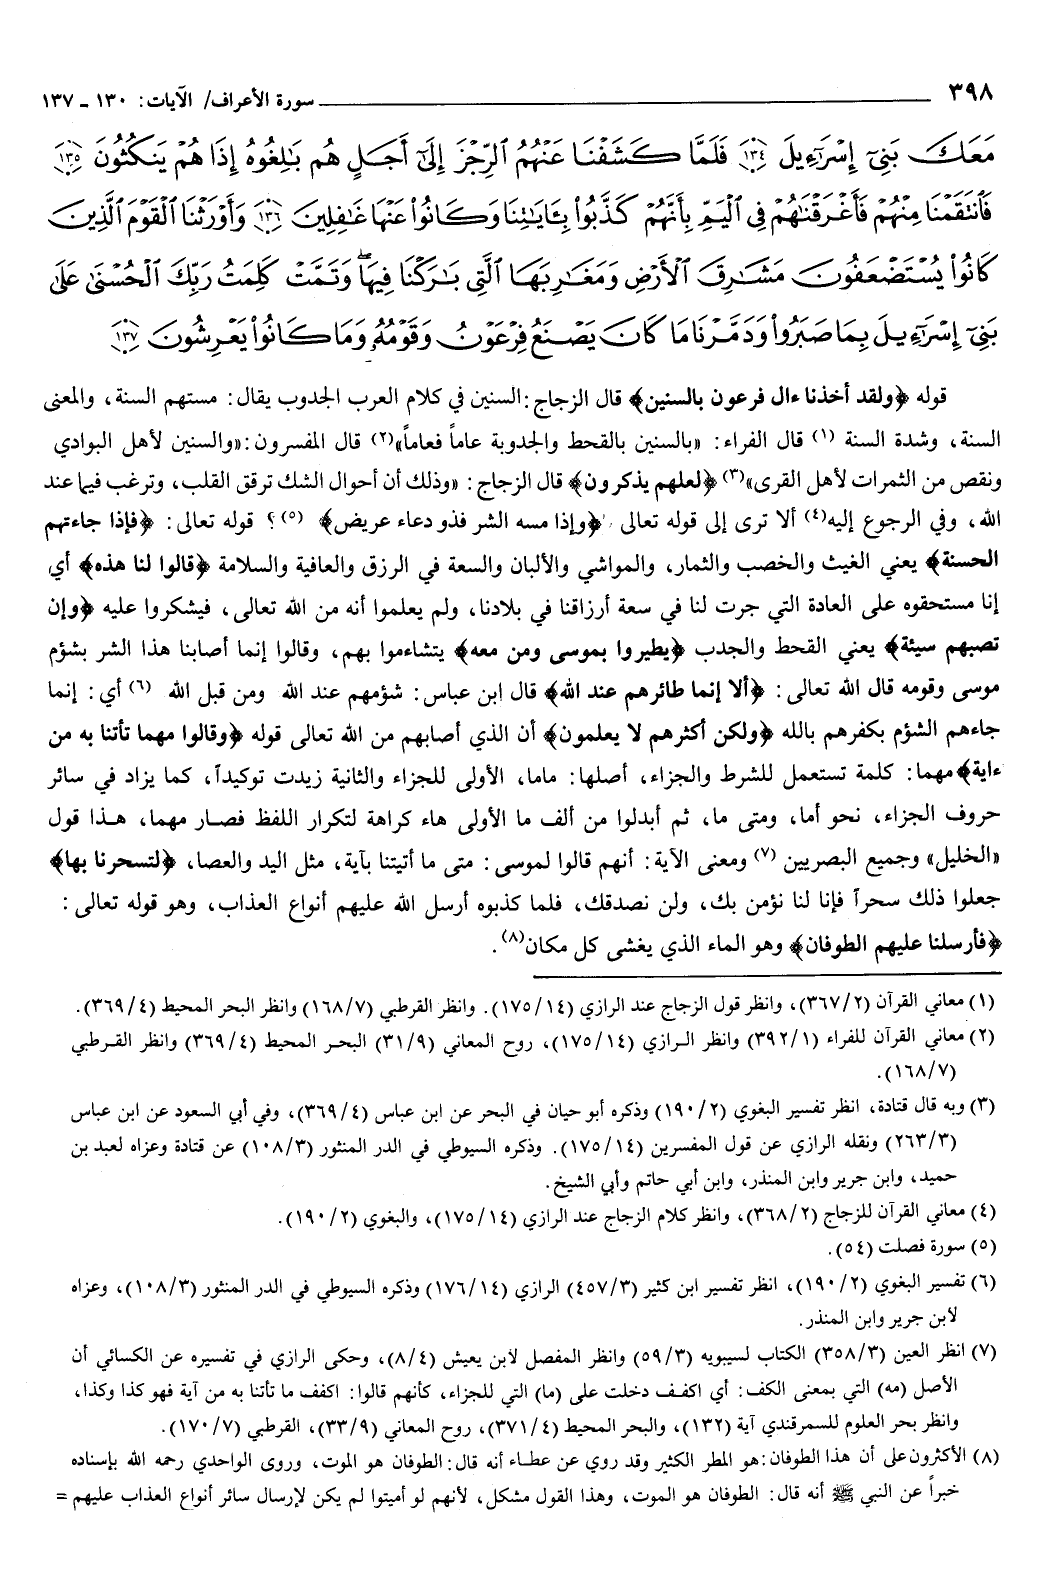 ٣٩٨ سورة الأعراف/ الآيات: ١٣٠ ـ ١٣٧
مَعَكَ بَنِيٓ إِسْرَٰٓءِيلَ ﴿١٣٤﴾ فَلَمَّا كَشَفْنَا عَنْهُمُ ٱلرِّجْزَ إِلَىٰٓ أَجَلٍ هُم بَٰلِغُوهُ إِذَا هُمْ يَنكُثُونَ ﴿١٣٥﴾
فَٱنتَقَمْنَا مِنْهُمْ فَأَغْرَقْنَٰهُمْ فِي ٱلْيَمِّ بِأَنَّهُمْ كَذَّبُوا۟ بِـَٔايَٰتِنَا وَكَانُوا۟ عَنْهَا غَٰفِلِينَ ﴿١٣٦﴾ وَأَوْرَثْنَا ٱلْقَوْمَ ٱلَّذِينَ
كَانُوا۟ يُسْتَضْعَفُونَ مَشَٰرِقَ ٱلْأَرْضِ وَمَغَٰرِبَهَا ٱلَّتِي بَٰرَكْنَا فِيهَا ۖ وَتَمَّتْ كَلِمَتُ رَبِّكَ ٱلْحُسْنَىٰ عَلَىٰ
بَنِيٓ إِسْرَٰٓءِيلَ بِمَا صَبَرُوا۟ وَدَمَّرْنَا مَا كَانَ يَصْنَعُ فِرْعَوْنُ وَقَوْمُهُۥ وَمَا كَانُوا۟ يَعْرِشُونَ ﴿١٣٧﴾
قوله ﴿ولقد أخذنا ءال فرعون بالسنين﴾ قال الزجاج: السنين في كلام العرب الجدوب يقال: مستهم السنة، والمعنى
السنة، وشدة السنة (١) قال الفراء: «بالسنين بالقحط والجدوبة عاماً فعاماً»(٢) قال المفسرون: «والسنين لأهل البوادي
ونقص من الثمرات لأهل القرى»(٣) ﴿لعلهم يذكرون﴾ قال الزجاج: «وذلك أن أحوال الشك ترقق القلب، وترغب فيما عند
الله، وفي الرجوع إليه(٤) ألا ترى إلى قوله تعالى ﴿وإذا مسه الشر فذو دعاء عريض﴾ (٥)؟ قوله تعالى: ﴿فإذا جاءتهم
الحسنة﴾ يعني الغيث والخصب والثمار، والمواشي والألبان والسعة في الرزق والعافية والسلامة ﴿قالوا لنا هذه﴾ أي
إنا مستحقوه على العادة التي جرت لنا في سعة أرزاقنا في بلادنا، ولم يعلموا أنه من الله تعالى، فيشكروا عليه ﴿وإن
تصبهم سيئة﴾ يعني القحط والجدب ﴿يطيروا بموسى ومن معه﴾ يتشاءموا بهم، وقالوا إنما أصابنا هذا الشر بشؤم
موسى وقومه قال الله تعالى: ﴿ألا إنما طائرهم عند الله﴾ قال ابن عباس: شؤمهم عند الله ومن قبل الله (٦) أي: إنما
جاءهم الشؤم بكفرهم بالله ﴿ولكن أكثرهم لا يعلمون﴾ أن الذي أصابهم من الله تعالى قوله ﴿وقالوا مهما تأتنا به من
ءاية﴾ مهما: كلمة تستعمل للشرط والجزاء، أصلها: ماما، الأولى للجزاء والثانية زيدت توكيداً، كما يزاد في سائر
حروف الجزاء، نحو أما، ومتى ما، ثم أبدلوا من ألف ما الأولى هاء كراهة لتكرار اللفظ فصار مهما، هذا قول
«الخليل» وجميع البصريين (٧) ومعنى الآية: أنهم قالوا لموسى: متى ما أتيتنا بآية، مثل اليد والعصا، ﴿لتسحرنا بها﴾
جعلوا ذلك سحراً فإنا لنا نؤمن بك، ولن نصدقك، فلما كذبوه أرسل الله عليهم أنواع العذاب، وهو قوله تعالى:
﴿فأرسلنا عليهم الطوفان﴾ وهو الماء الذي يغشى كل مكان(٨).
(١) معاني القرآن (٣٦٧/٢)، وانظر قول الزجاج عند الرازي (١٧٥/١٤). وانظر القرطبي (١٦٨/٧) وانظر البحر المحيط (٣٦٩/٤).
(٢) معاني القرآن للفراء (٣٩٢/١) وانظر الرازي (١٧٥/١٤)، روح المعاني (٣١/٩) البحر المحيط (٣٦٩/٤) وانظر القرطبي
(١٦٨/٧).
(٣) وبه قال قتادة، انظر تفسير البغوي (١٩٠/٢) وذكره أبو حيان في البحر عن ابن عباس (٣٦٩/٤)، وفي أبي السعود عن ابن عباس
(٢٦٣/٣) ونقله الرازي عن قول المفسرين (١٧٥/١٤). وذكره السيوطي في الدر المنثور (١٠٨/٣) عن قتادة وعزاه لعبد بن
حميد، وابن جرير وابن المنذر، وابن أبي حاتم وأبي الشيخ.
(٤) معاني القرآن للزجاج (٣٦٨/٢)، وانظر كلام الزجاج عند الرازي (١٧٥/١٤)، والبغوي (١٩٠/٢).
(٥) سورة فصلت (٥٤).
(٦) تفسير البغوي (١٩٠/٢)، انظر تفسير ابن كثير (٤٥٧/٣) الرازي (١٧٦/١٤) وذكره السيوطي في الدر المنثور (١٠٨/٣)، وعزاه
لابن جرير وابن المنذر.
(٧) انظر العين (٣٥٨/٣) الكتاب لسيبويه (٥٩/٣) وانظر المفصل لابن يعيش (٨/٤)، وحكى الرازي في تفسيره عن الكسائي أن
الأصل (مه) التي بمعنى الكف: أي اكفف دخلت على (ما) التي للجزاء، كأنهم قالوا: اكفف ما تأتنا به من آية فهو كذا وكذا،
وانظر بحر العلوم للسمرقندي آية (١٣٢)، والبحر المحيط (٣٧١/٤)، روح المعاني (٣٣/٩)، القرطبي (١٧٠/٧).
(٨) الأكثرون على أن هذا الطوفان: هو المطر الكثير وقد روي عن عطاء أنه قال: الطوفان هو الموت، وروى الواحدي رحمه الله بإسناده
خبراً عن النبي ﷺ أنه قال: الطوفان هو الموت، وهذا القول مشكل، لأنهم لو أميتوا لم يكن لإرسال سائر أنواع العذاب عليهم =